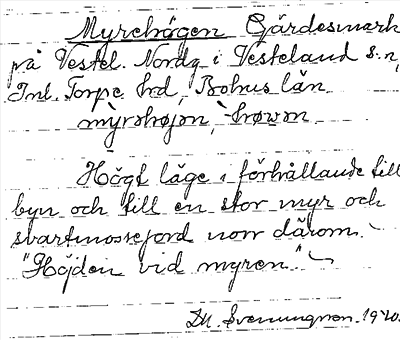 Myrehögen Gärdesmark
på Vestel. Nordg i Vesteland s:n,
Inl. Torpe hd, Bohus län
Högt läge i förhållande till
byn och till en stor myr och
svartmossejord norr därom.
"Höjden vid myren."
Svenungson. 1920.